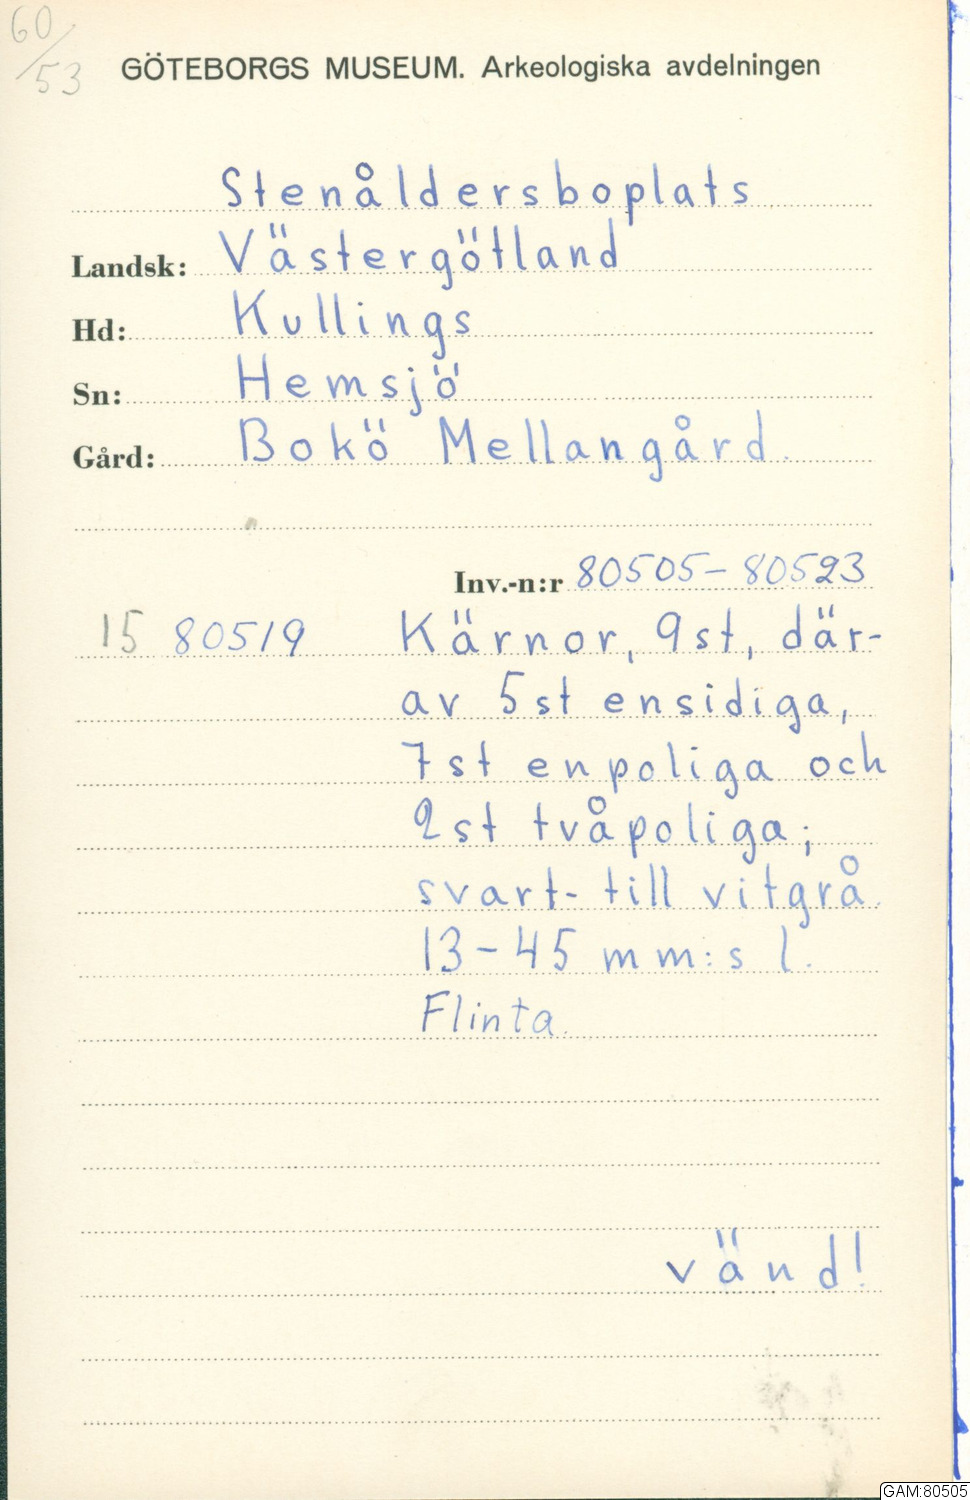 60/53
GÖTEBORGS MUSEUM. Arkeologiska avdelningen
Stenåldersboplats
Landsk: Västergötland
Hd: Kullings
Sn: Hemsjö
Gård: Bokö Mellangård.
Inv.-n:r 80505-80523
15 80519 Kärnor, 9st, där-
av 5st ensidiga,
7st enpoliga och
2st tvåpoliga;
svart- till vitgrå.
13-45 mm:s l.
Flinta.
vänd!
GAM:80505